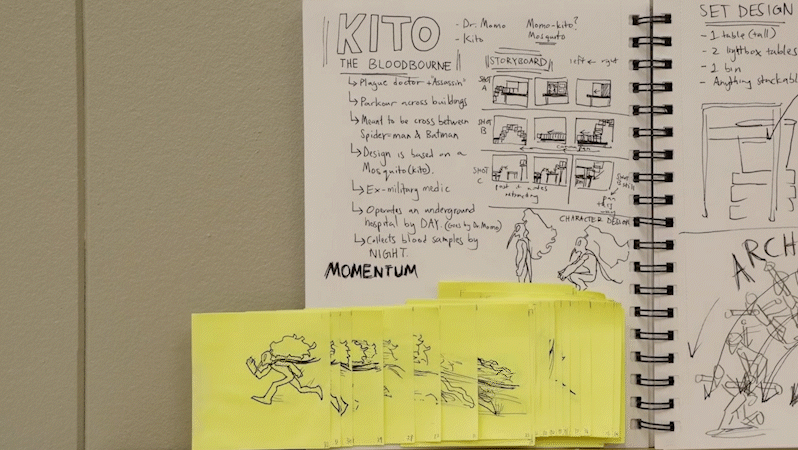 KITO
THE BLOODBOURNE
- Dr. Momo
- Kito
Momo-kito?
Mosquito
↳ Plague doctor + "Assassin"
↳ Parkour across buildings
↳ Meant to be cross between
Spider-man & Batman
↳ Design is based on a
Mosquito (kito).
↳ Ex-military medic
↳ Operates an underground
hospital by DAY. (Goes by Dr. Momo)
↳ Collects blood samples by
NIGHT.
MOMENTUM
STORYBOARD
left ← right
SHOT
A
SHOT
B
SHOT
C
post it notes
pan
this
CHARACTER DESIGN
SET DESIGN
- 1 table (tall)
- 2 lightbox tables
- 1 bin
- Anything stackabl
ARCH